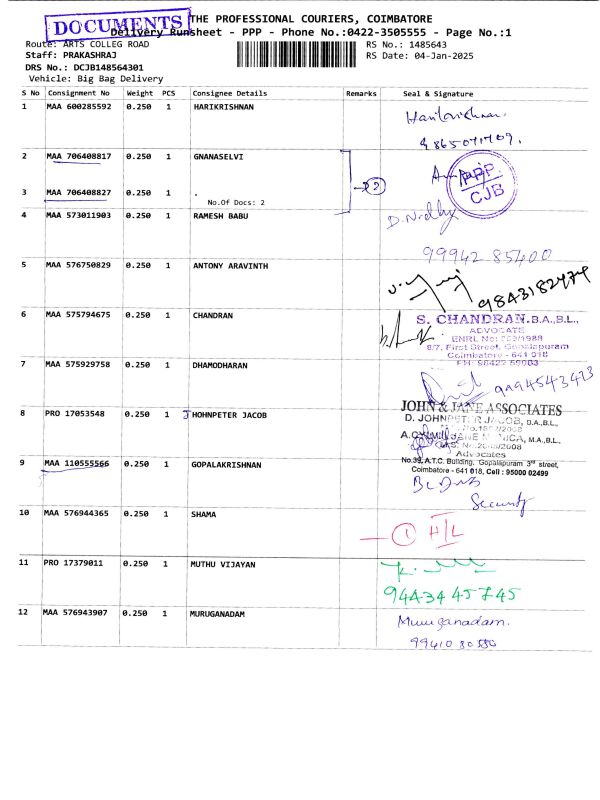 DOCUMENTS
THE PROFESSIONAL COURIERS, COIMBATORE
Delivery Runsheet - PPP - Phone No.:0422-3505555 - Page No.:1
Route: ARTS COLLEG ROAD
RS No.: 1485643
Staff: PRAKASHRAJ
RS Date: 04-Jan-2025
DRS No.: DCJB148564301
Vehicle: Big Bag Delivery
S No Consignment No Weight PCS Consignee Details Remarks Seal & Signature
1 MAA 600285592 0.250 1 HARIKRISHNAN Harikrishnan.
2 MAA 706408817 0.250 1 GNANASELVI
PPP
CJB
2
3 MAA 706408827 0.250 1 .
No.Of Docs: 2
4 MAA 573011903 0.250 1 RAMESH BABU
99942 85400
5 MAA 576750829 0.250 1 ANTONY ARAVINTH
9843182474
6 MAA 575794675 0.250 1 CHANDRAN S. CHANDRAN, B.A.,B.L.,
ADVOCATE
First Street, Gopalapuram
Coimbatore - 641 018
7 MAA 575929758 0.250 1 DHAMODHARAN
9994543423
8 PRO 17053548 0.250 1 J HOHNPETER JACOB JOHN & JANE ASSOCIATES
D. JOHNPETER JACOB, B.A.,B.L.,
M.A.,B.L.,
Advocates
No.39, A.T.C. Building, Gopalapuram 3rd street,
Coimbatore - 641 018, Cell : 95000 02499
9 MAA 110555566 0.250 1 GOPALAKRISHNAN
Security
10 MAA 576944365 0.250 1 SHAMA 1 H/L
11 PRO 17379011 0.250 1 MUTHU VIJAYAN
9443445745
12 MAA 576943907 0.250 1 MURUGANADAM Muruganadam.